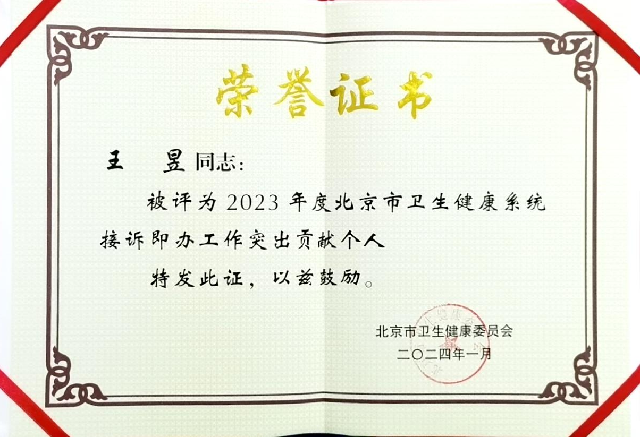 荣誉证书
王 昱同志：
被评为2023年度北京市卫生健康系统
接诉即办工作突出贡献个人
特发此证，以兹鼓励。
北京市卫生健康委员会
二〇二四年一月